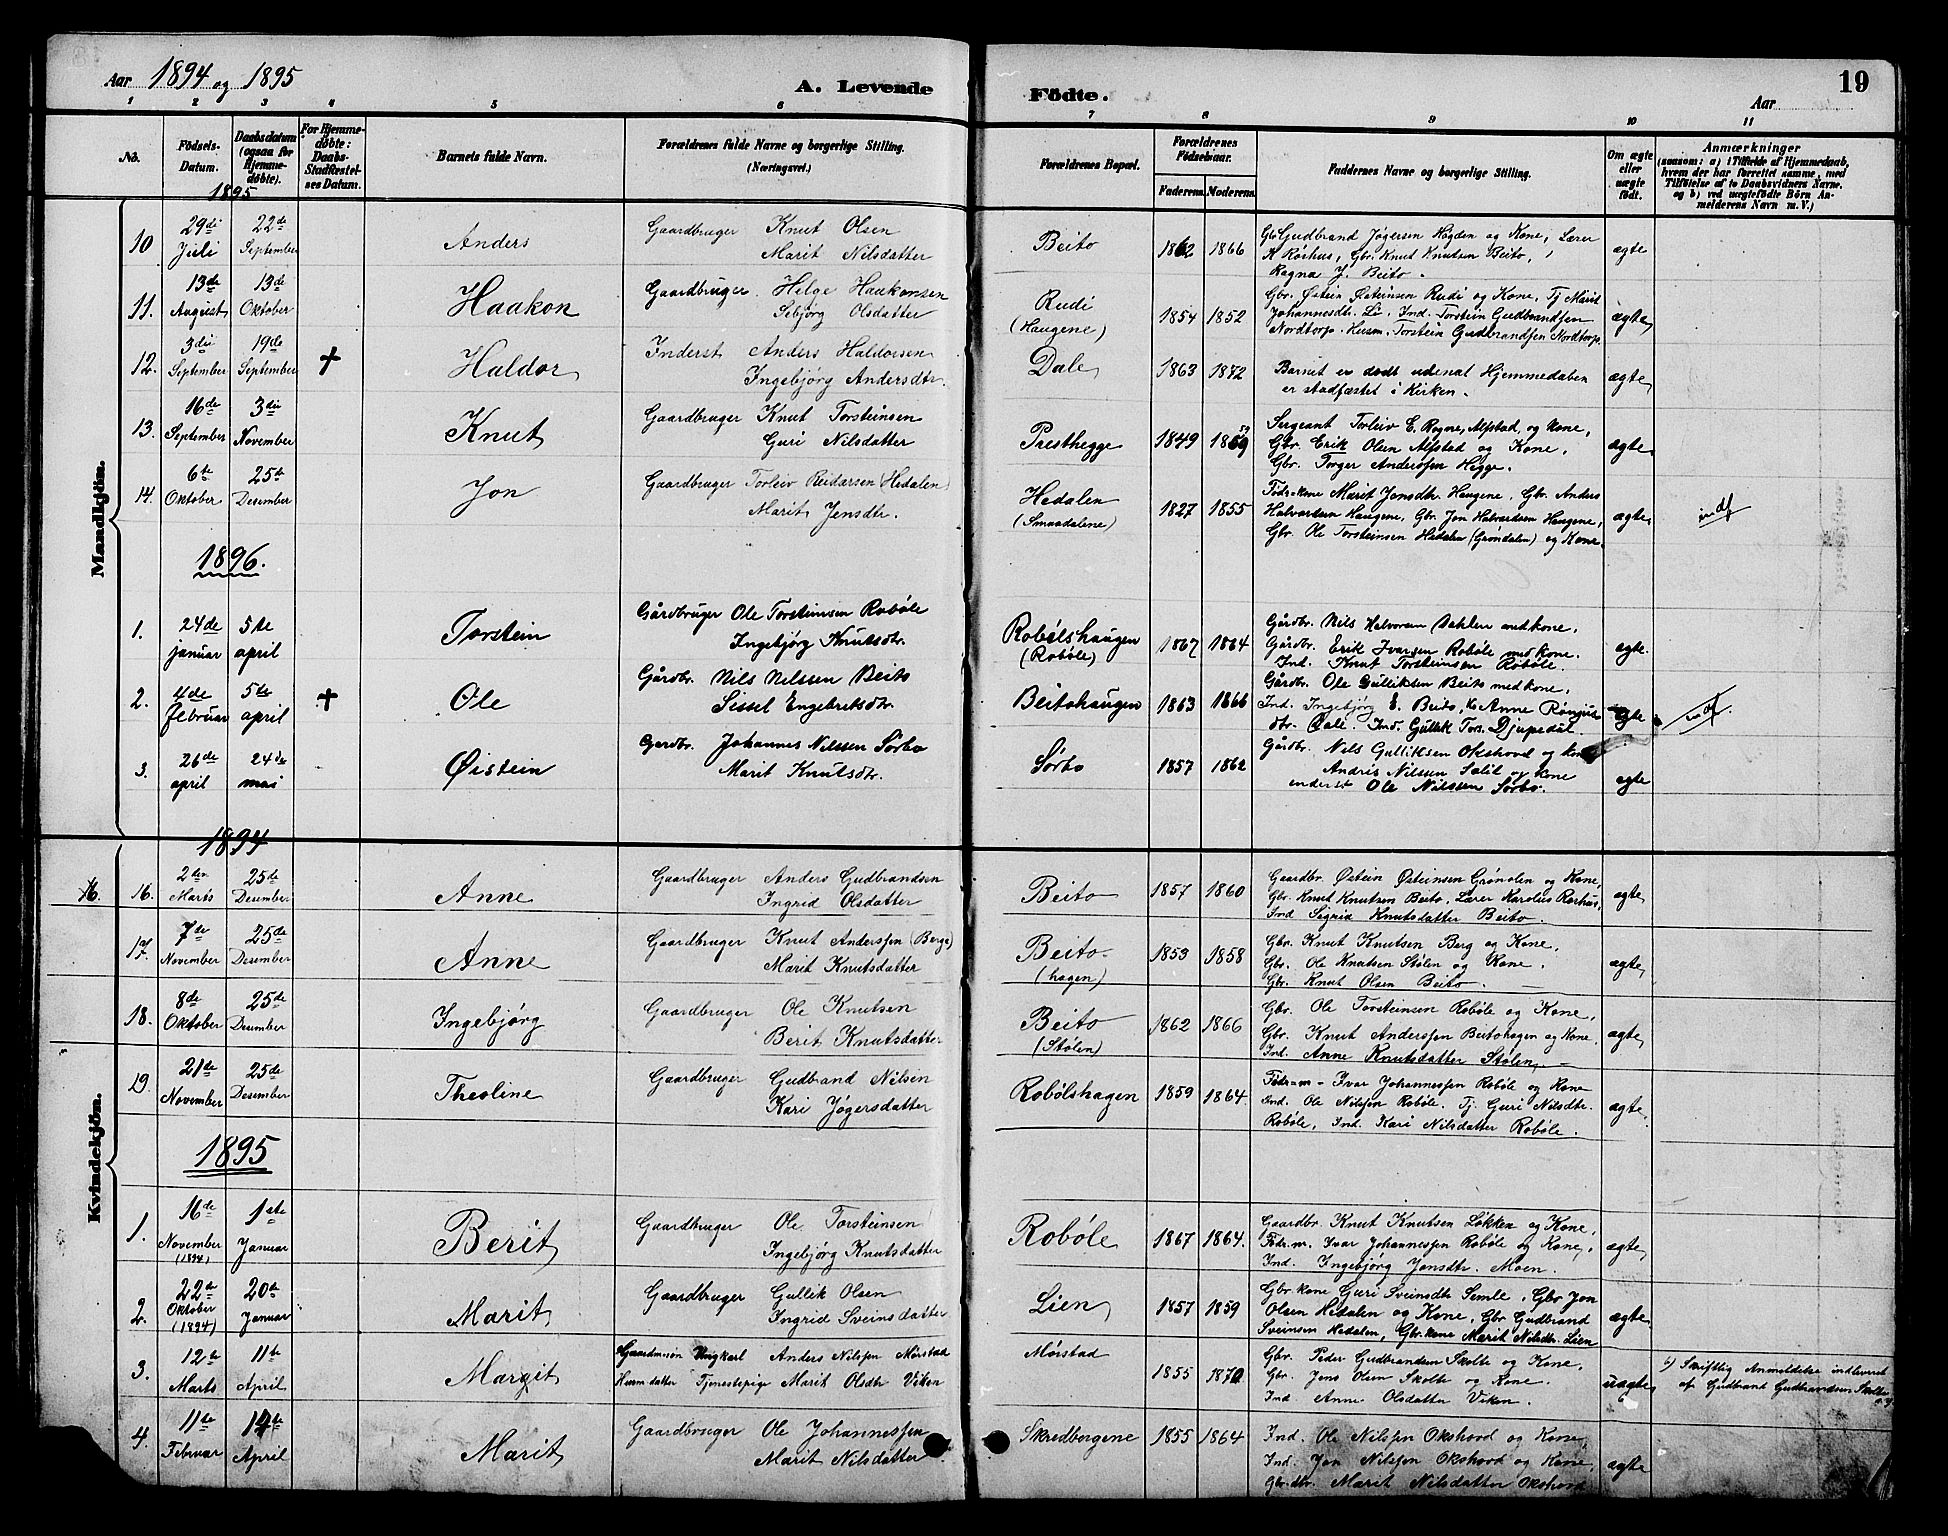 Aar 1894 og 1895
A. Levende Födte.
19
Aar
1 2 3 4 5 6 7 8 9 10 11
No.
Födsels-Datum.
Daabsdatum (ogsaa for Hjemme-döbte).
For Hjemme-döbte: Daabs-Stadfæstel-ses Datum.
Barnets fulde Navn.
Forældrenes fulde Navne og borgerlige Stilling. (Næringsvei.)
Forældrenes Bopæl.
Forældrenes Födselsaar.
Faderens. Moderens.
Faddernes Navne og borgerlige Stilling.
Om ægte eller uægte födt.
Anmærkninger
(saasom: a) i Tilfælde af Hjemmedaab,
hvem der har forrettet samme, med
Tilföielse af to Daabsvidners Navne.
og b) ved uægtefödte Börn An-
melderens Navn m. V.)
Mandkjön.
1895
10 29de Juli 22de September Anders Gaardbruger Knut Olsen
Marit Nilsdatter Beito 1862 1866 Gbr Gudbrand Jøgersen Høgden og Kone, Lærer
K Rørhus, Gbr. Knut Knutsen Beito,
Ragna J. Beito. ægte
11. 13de August 13de Oktober Haakon Gaardbruger Helge Haakonsen
Sebjörg Olsdatter Rudi (Haugene) 1854 1852 Gbr. Østein Østeinsen Rudi og Kone, Tj Marit
Johannesdtr. Li, Ind. Torstein Gudbrandsen
Nordtorp. Husm. Torstein Gudbrandsen Nordtorp. ægte
12. 3die September 19de September † Haldor Inderst Anders Haldorsen
Ingebjörg Andersdtr. Dale 1863 1872 Barnet er dødt udenat Hjemmedaben
er stadfæstet i Kirken. ægte
13. 16de September 3die November Knut Gaardbruger Knut Torsteinsen
Guri Nilsdatter Presthegge 1849 1859 Sergeant Torleiv E. Rogne, Alfstad, og Kone,
Gbr. Erik Olsen Alfstad og Kone,
Gbr. Torger Andersen Hegge. ægte
14. 6te Oktober 25de Desember Jon Gaardbruger Torleiv Reidarsen (Hedalen)
Marit Jensdtr. Hedalen (Smaadalene) 1827 1855 Födr.kone Marit Jonsdtr. Haugene, Gbr. Anders
Halvorsen Haugene, Gbr. Jon Halvordsen Haugene,
Gbr. Ole Torsteinsen Hedalen (Grøndalen) og Kone. ægte indf
1896.
1. 24de januar 5te april Torstein Gårdbruger Ole Torsteinsen Robøle
Ingebjörg Knutsdtr. Robølshaugen (Robøle) 1867 1864 Gårdbr. Nils Halvorsen Dahlen med kone,
Gårdbr. Erik Ivarsen Robøle med kone.
Ind. Knut Torsteinsen Robøle. ægte
2. 4de februar 5te april † Ole Gårdbr. Nils Nilssen Beito
Sissel Engebretsdtr. Beitohaugen 1863 1866 Gårdbr. Ole Gulliksen Beito med kone,
Ind. Ingebjörg E. Beito, Anne
dtr. Dale. Ind. Gullik Tors. Djupedal. ægte indf.
3. 26de april 24de mai Øistein Gardbr. Johannes Nilssen Sørbø
Marit Knutsdtr. Sørbø 1857 1862 Gårdbr. Nils Gulliksen Okshovd og kone
Andris Nilssen Salit og kone
inderst Ole Nilssen Sørbø. ægte
Kvindekjön.
1894
16. 16. 2den Marts 25de Desember Anne Gaardbruger Anders Gudbrandsen
Ingrid Olsdatter Beito 1857 1860 Gaardbr. Østein Østeinsen Grønolen og Kone,
Gbr. Knut Knutsen Beito, Lærer Karolus Rørhus,
Ind. Sigrid Knutsdatter Beito. ægte
17. 7de November 25de Desember Anne Gaardbruger Knut Andersen (Berge)
Marit Knutsdatter Beito (hagen) 1853 1858 Gbr. Knut Knutsen Berg og Kone,
Gbr. Ole Knutsen Stølen og Kone.
Gbr. Knut Olsen Beito. ægte
18. 8de Oktober 25de Desember Ingebjörg Gaardbruger Ole Knutsen
Berit Knutsdatter Beito (Stølen) 1862 1866 Gbr. Ole Torsteinsen Robøle og Kone,
Gbr. Knut Andersen Beitohagen og Kone.
Ind. Anne Knutsdatter Stølen. ægte
19. 21de November 25de Desember Theoline Gaardbruger Gudbrand Nilsen
Kari Jøgersdatter Robølshagen 1859 1864 Födr-m- Ivar Johannesen Robøle og Kone
Ind. Ole Nilsen Robøle. Tj. Guri Nilsdtr.
Robøle, Ind. Kari Nilsdatter Robøle. ægte
1895
1. 16de November (1894) 1ste Januar Berit Gaardbruger Ole Torsteinsen
Ingebjörg Knutsdatter Robøle 1867 1864. Gaardbr. Knut Knutsen Løkken og Kone,
Födr.m. Ivar Johannesen Robøle og Kone,
Ind. Ingebjörg Jonsdtr. Moen. ægte
2. 22de Oktober (1894) 20de Januar Marit Gaardbruger Gullik Olsen
Ingrid Sveinsdatter Lien 1857 1859 Gbr.kone Guri Sveinsdtr Semle, Gbr Jon
Olsen Hedalen og Kone, Gbr Gudbrand
Sveinsen Hedalen, Gbr.kone Marit Nilsdtr. Lien ægte
3. 12te Marts 11te April Margit Gaardmansön Ungkarl Anders Nilsen Mørstad
Husmdatter Tjenestepige Marit Olsdtr Viken Mørstad 1855 1870 Gbr. Peder Gudbrandsen Skolte og Kone,
Gbr. Jens Olsen Skolte og Kone.
Ind. Anne Olsdatter Viken. uægte b) Skriftlig Anmeldelse indleveret
af Gudbrand Gudbrandsen Skolte
4. 11te Februar 14de April Marit Gaardbruger Ole Johannesen
Marit Nilsdatter Skredbergene 1855 1864 Ind. Ole Nilsen Okshovd og Kone,
Ind. Jon Nilsen Okshovd og Kone,
Gbr.dtr. Marit Nilsdatter Okshovd ægte